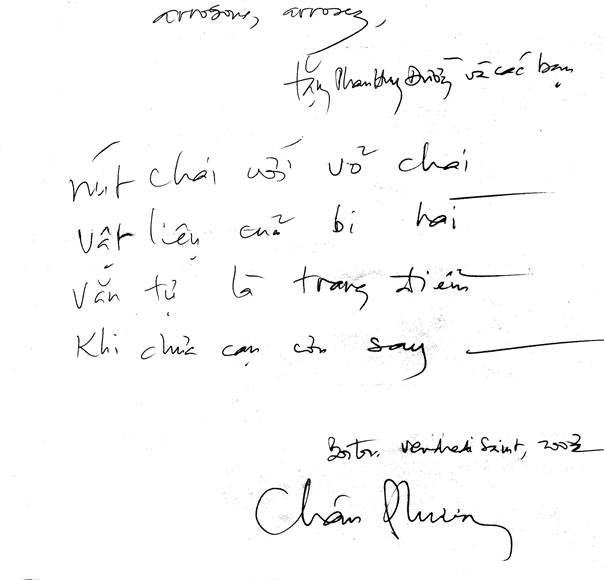 arrosons, arrosez,
tặng Phan Huy Đường và các bạn
nút chai với vỏ chai
vật liệu của bi hài
văn tự là trang điểm
Khi chưa cạn cơn say
Boston. Vendredi Saint, 2003
Chân Phương